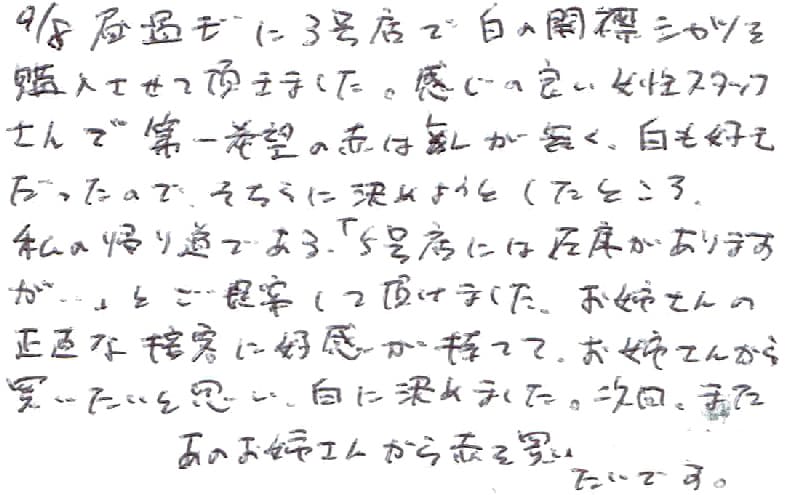 9/8 昼過ぎに3号店で白の開襟シャツを
購入させて頂きました。感じの良い女性スタッフ
さんで第一希望の赤は が無く、白も好き
だったので、そちらに決めようとしたところ、
私の帰り道である、「5号店には在庫があります
が…」とご提案して頂けました。お姉さんの
正直な接客に好感が持てて、お姉さんから
買いたいと思い、白に決めました。次回、また
あのお姉さんから赤を買い
たいです。